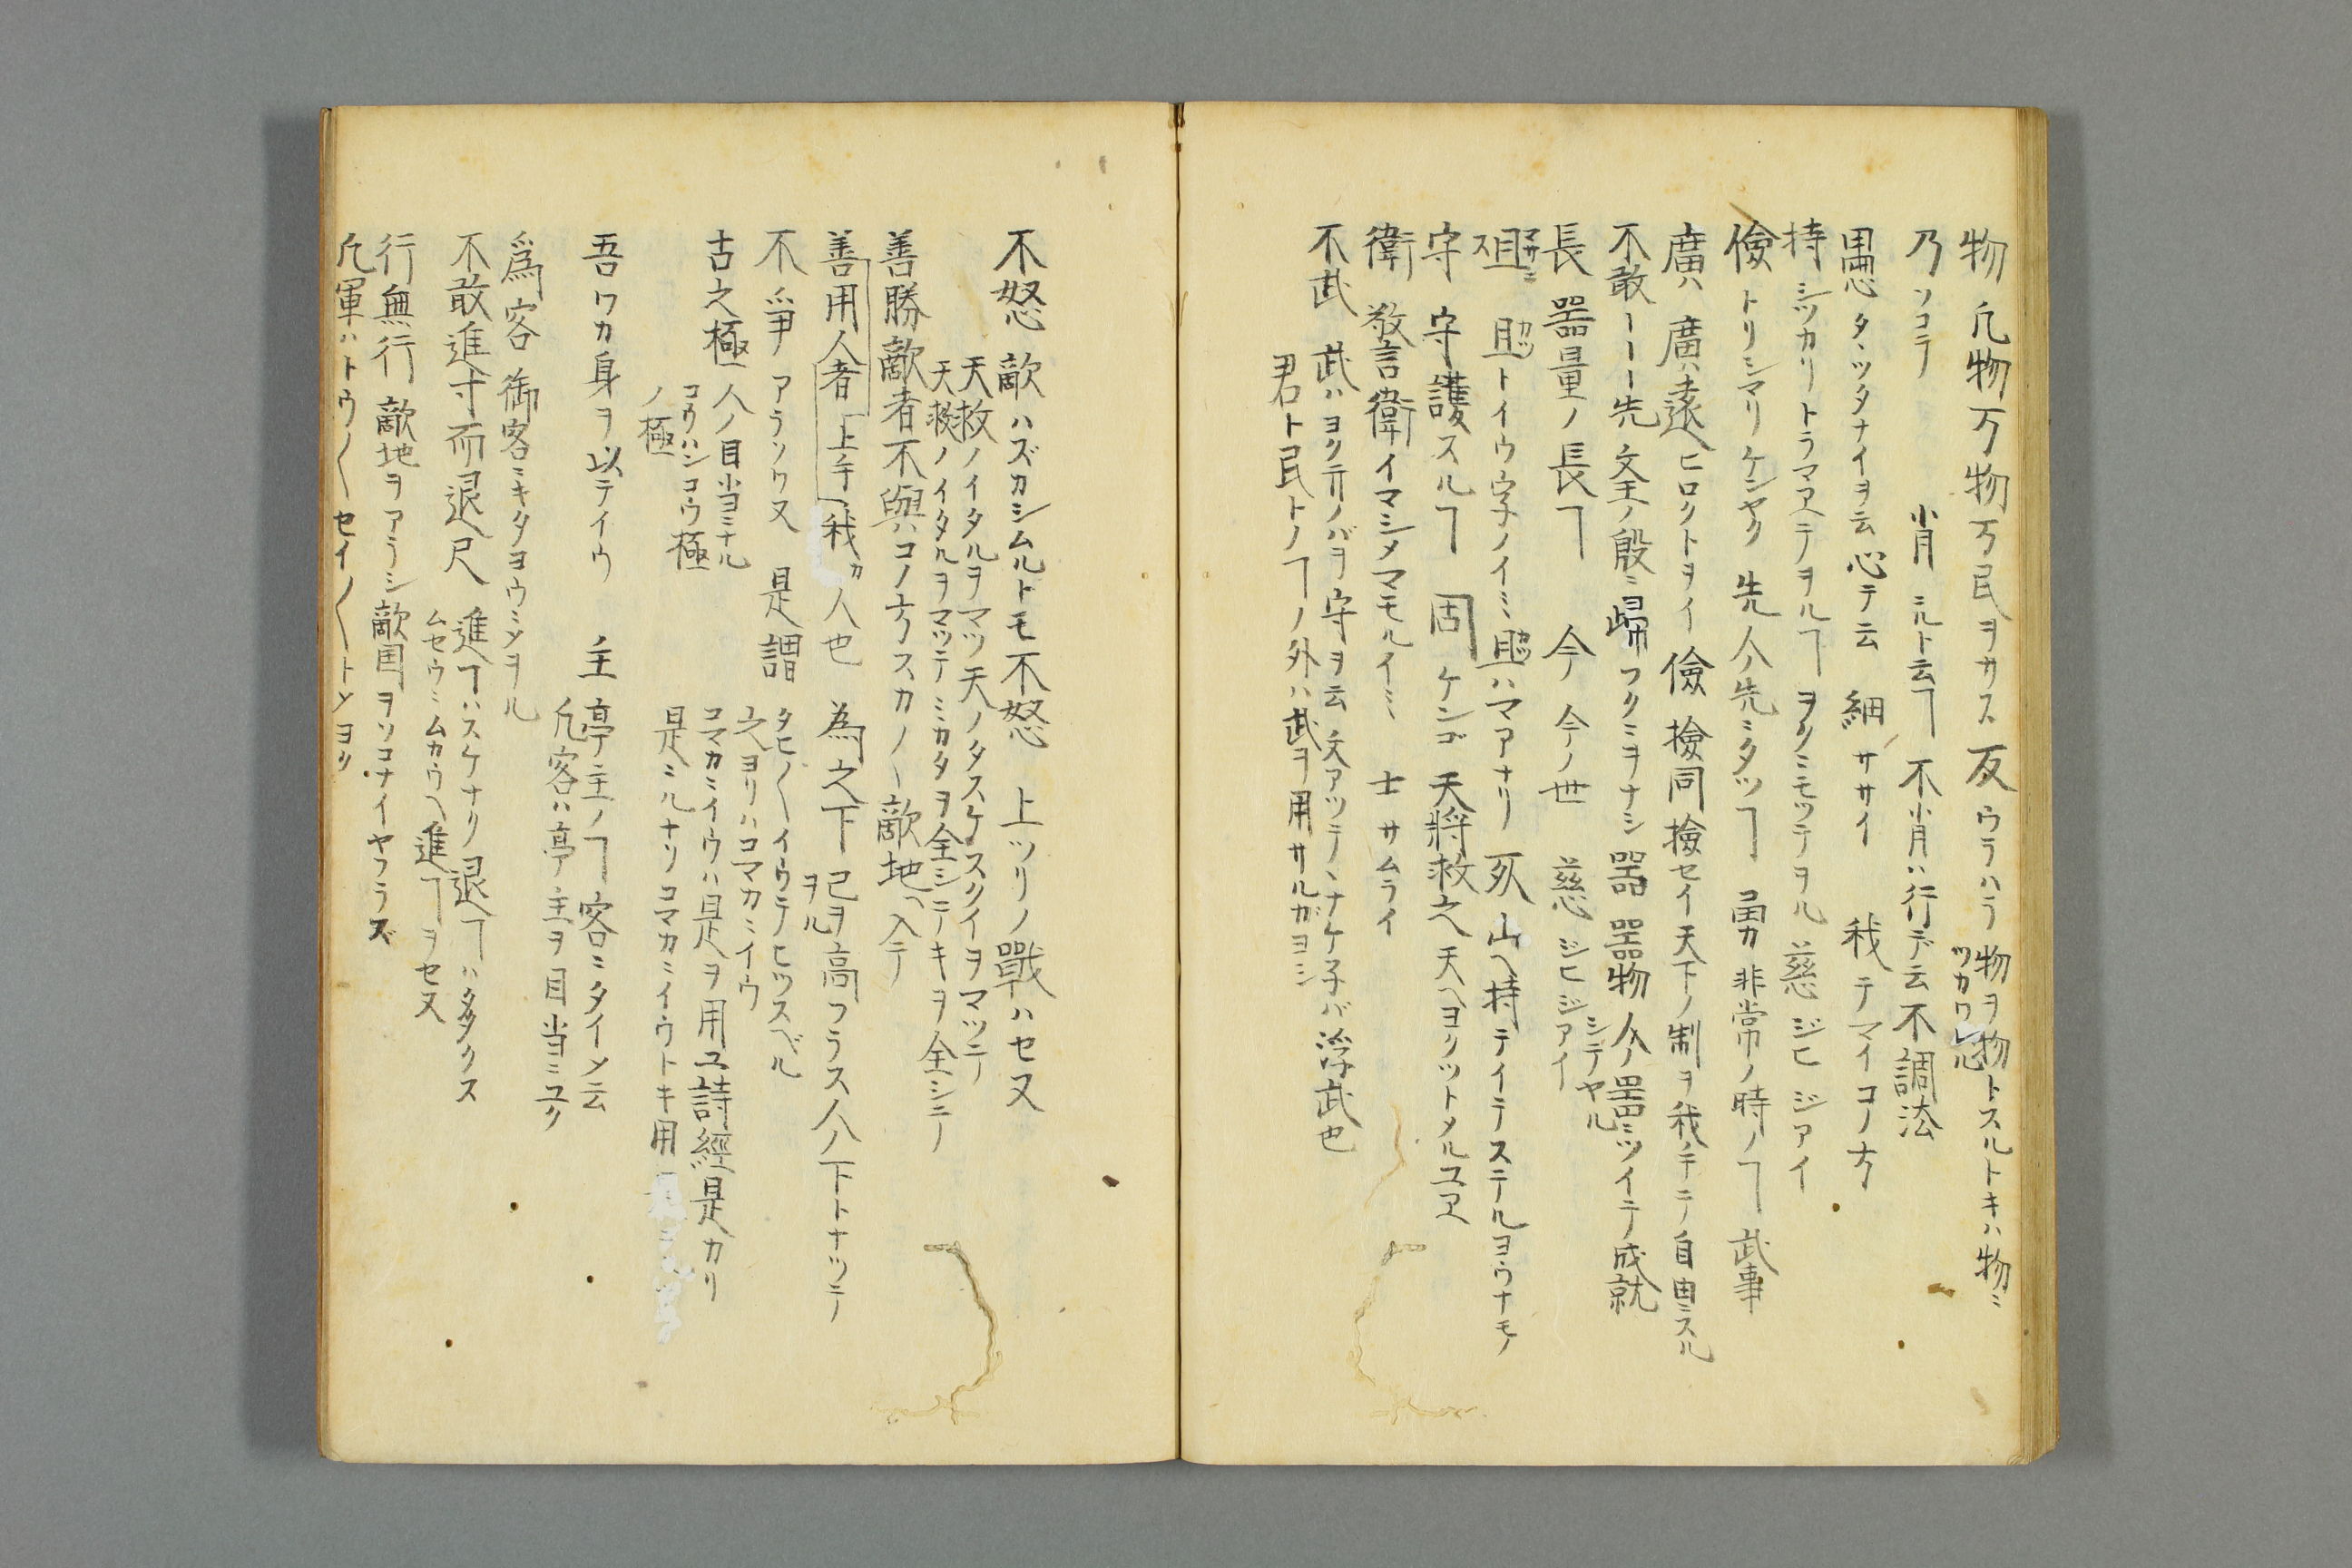 物 凡物万物万民ヲサス 反 ウラハラ 物ヲ物トスルトキハ物ニ
ツカワレル
乃 ソコテ 肖 ニルト云ヿ 不肖ハ行デ云不調法
愚 タヽツタナイヲ云 心テ云 細 ササイ 我テマイコノ方
持 シツカリトラマアヘテヲルヿ ヲクニモツテヲル 慈 ジヒ ジアイ
儉 トリシマリケンヤク 先 人ノ先ニタツヿ 勇 非常ノ時ノヿ 武事
廣ハ 廣ハ遠ヘヒロクトヲイ 儉 撿同撿セイ天下ノ制ヲ我ノテニテ自由ニスル
不敢ーーー先 文王ノ殷ニ歸フクミヲナシ 器 器物 人ノ器ニツイテ成就
シテヤル
長 器量ノ長ヿ 今 今ノ世 慈 ジヒ ジアイ
且 且トイウ字ノイミ 且ハマアナリ 死 山ヘ持テイテステルヨウナモノ
守 守護スルヿ 固 ケンゴ 天將救之 天ヘヨクツトメルユアヘ
衛 警衛イマシメマモルイミ 士 サムライ
不武 武ハヨク元ノバヲ守ヲ云 文アツテノヽナケ子バ浮武也
君ト民トノヿノ外ハ武ヲ用サルガヨシ
不怒 敵ハズカシムルトモ不怒 上ツリノ戰ハセヌ
天救ノイタルヲマツ天ノタスケスクイヲマツテ
天救ノイタルヲマツテミカタヲ全シテキヲ全シテ
善勝敵者不與ハコノ方カノスカノ〱敵地ヘ入テ
善用人者 上手 我カ人也 為之下 己ヲ高フラス人ノ下トナツテ
ヲル
不爭 アラソワヌ 是謂 タヒ〱イウテヒツスベル
之ヨリハコマカミイウ
古之極 人ノ目当ニナル コマカミイウハ是ヲ用ユ詩經是ハカリ
コウハンコウ極 是ミルナリコマカミイウトキ用
ノ極
吾 ワカ身ヲ以テイウ 主 亭主ノヿ 客ニタイメ云
凡客ハ亭主ヲ目当ニユク
爲客 御客ミキタヨウミメヲル
不敢進寸而退尺 進ヿハスケナク退ヿハタクス
ムセウミムカウヘ進ヿヲセヌ
行無行 敵地ヲアラシ敵国ヲソコナイヤフラズ
凡軍ハトウ〱セイ〱トメヨリ